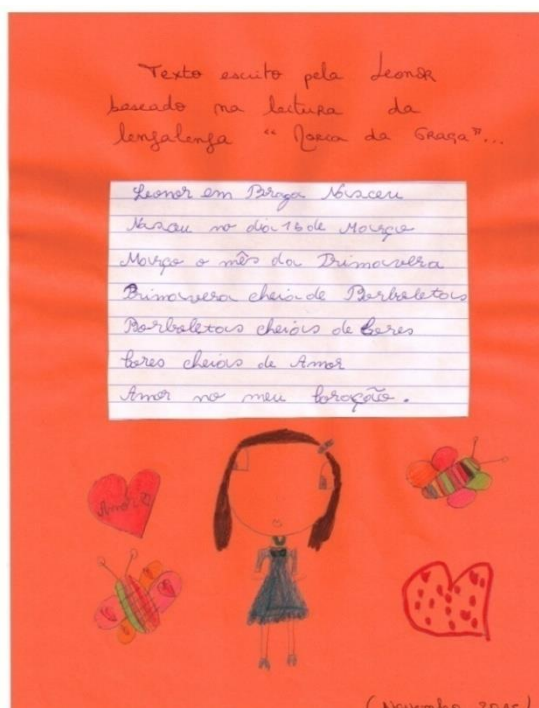 Texto escrito pela Leonor
baseado na lectura da
lengalenga "Maria da Graça"...
Leonor em Braga Nasceu
Nasceu no dia 13 de Março
Março o mês da Primavera
Primavera cheia de Borboletas
Borboletas cheias de Cores
Cores cheias de Amor
Amor no meu Coração.
Amor
(Novembro